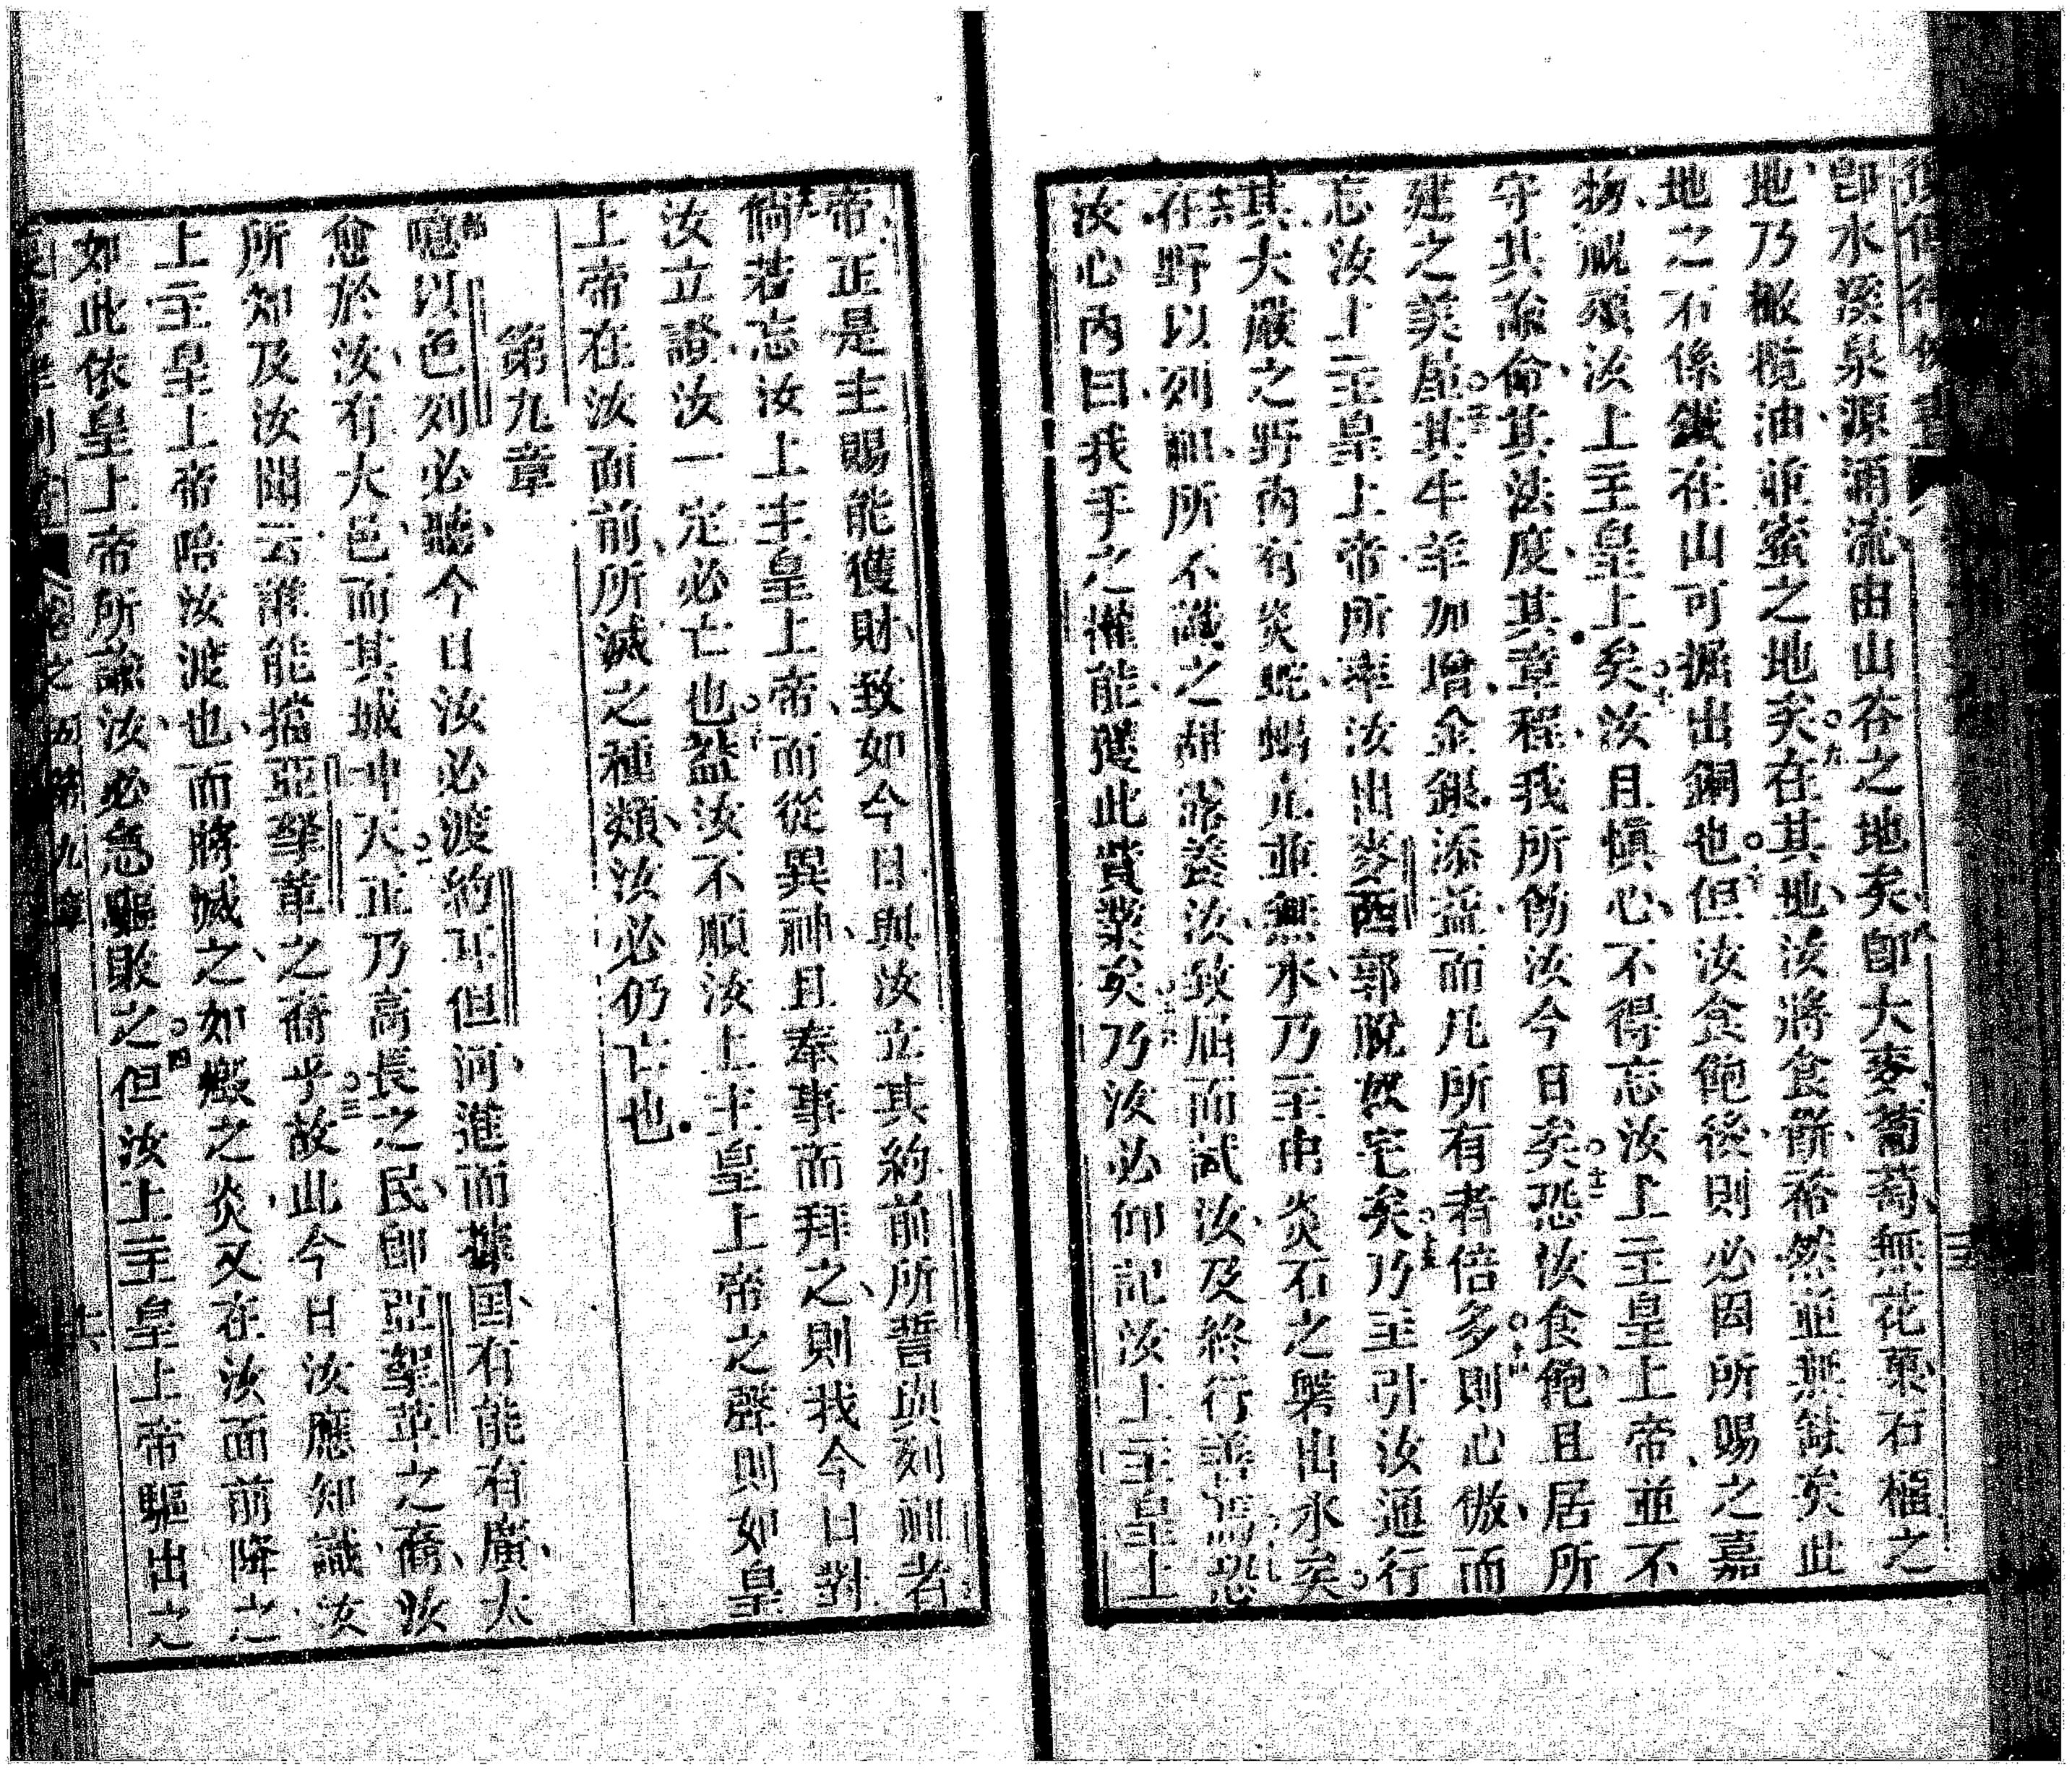 復傳律例書
卽水溪泉源湧流由山谷之地矣八卽大麥葡萄無花菓石榴之
地乃橄欖油並蜜之地矣○九在其地汝將食餅莟然並無缺矣此
地之石係鐵在山可掘出銅也○十但汝食飽後則必因所賜之嘉
物祝頌汝上主皇上矣○十一汝且愼心不得忘汝上主皇上帝並不
守其誡命其法度其章程我所飭汝今日矣○十二恐汝食飽且居所
建之美屋○十三其牛羊加增金銀添益而凡所有者倍多○十四則心傲而
忘汝上主皇上帝所率汝出麥西郭脫奴宅矣○十五乃主引汝通行
其大嚴之野內有炎蛇蝎尤並無水乃主由炎石之磐出水矣○
十六在野以列祖所不識之甜露養汝致屈而試汝及終行善焉○十七恐
汝心內曰我手之權能獲此貲業矣○十八乃汝必仰記汝上主皇上
帝正是主賜能獲財致如今日與汝立其約前所誓與列祖者○
十九倘若忘汝上主皇上帝而從異神且奉事而拜之則我今日對
汝立證汝一定必亡也○二十蓋汝不順汝上主皇上帝之聲則如皇
上帝在汝面前所滅之種類汝必仍亡也
第九章
一噫以色列必聽今日汝必渡約耳但河進而攄国有能有廣大
愈於汝有大邑而其城冲天○二正乃高長之民卽亞拏革之裔汝
所知及汝聞云誰能擋亞拏革之裔乎○三故此今日汝應知識汝
上主皇上帝陪汝渡也而將滅之如燬之炎又在汝面前降之
如此依皇上帝所諭汝必急驅敗之○四但汝上主皇上帝驅出之
復傳律例書 卷之五第九章 十六